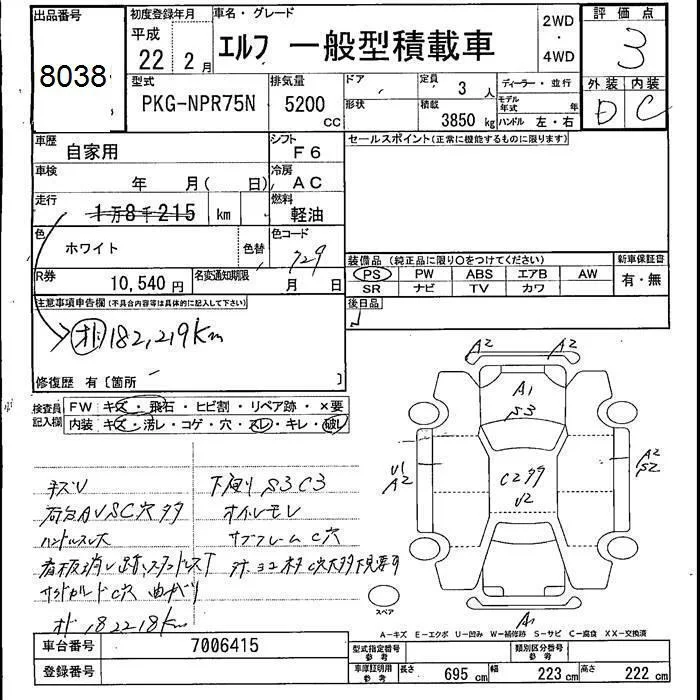 出品番号 初度登録年月 車名・グレード 2WD・4WD 評価点
8038 平成 22 2月 エルフ 一般型積載車 3
外装 内装
D C
型式 排気量 ドア 定員 3人 ディーラー・並行
PKG-NPR75N 5200 cc 形状 積載 3850 kg モデル年式 年
ハンドル 左・右
車歴 自家用 シフト F6 セールスポイント(正常に機能するものに限ります)
車検 年 月( 日) 冷房 AC
走行 1万8千215 km 燃料 軽油
色 ホワイト 色替 色コード 729
装備品 (純正品に限り○をつけてください) 新車保証書
PS PW ABS エアB AW 有・無
SR ナビ TV カワ
R券 10,540円 名変通知期限 月 日
後日品
注意事項申告欄(不具合内容等は具体的に記入して下さい)
オド 182,219Km
修復歴 有〔箇所 〕
検査員記入欄 FW キズ・飛石・ヒビ割・リペア跡・×要
内装 キズ・汚レ・コゲ・穴・スレ・キレ・破レ
A2 A2
A1
S3
U1
A2
C299
U2
A2
S2
A1
スペア
キズU 下廻りS3C3
荷台AUSC穴多 オイルモレ
ハンドルスレ大 サブフレームC穴
サイドガルドC穴 曲がり
オド 182218Km
A-キズ E-エクボ U-凹み W-補修跡 S-サビ C-腐食 XX-交換済
車台番号 7006415 型式指定番号 参考 類別区分番号 参考
登録番号 車庫証明用 参考 長さ 695 cm 幅 223 cm 高さ 222 cm